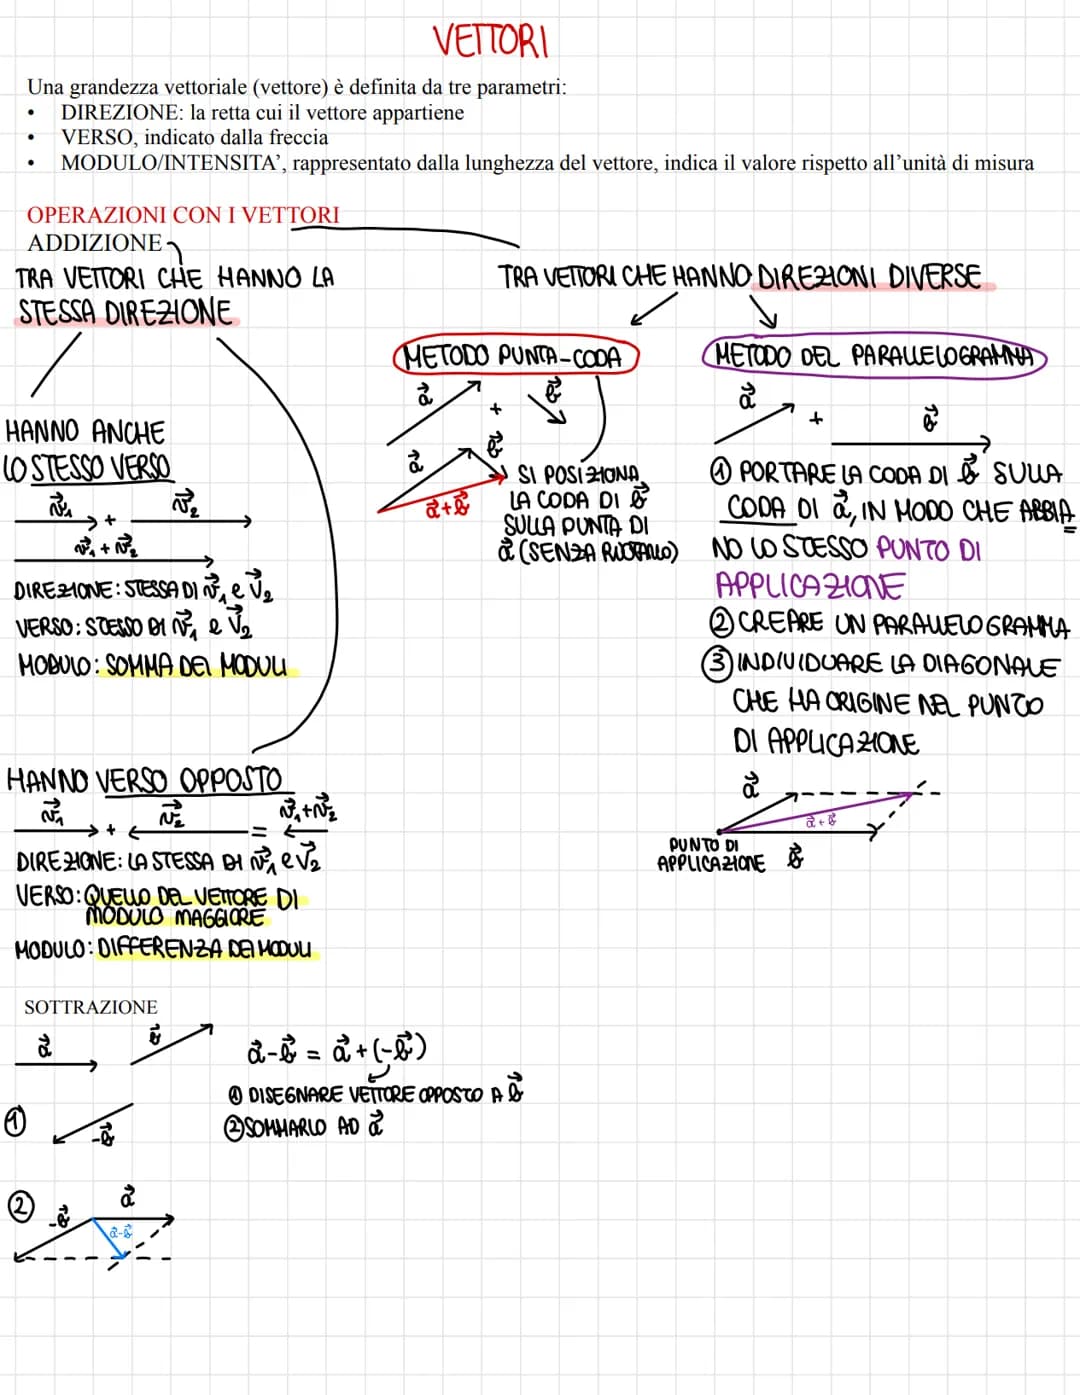 VETTORI
Una grandezza vettoriale (vettore) è definita da tre parametri:
• DIREZIONE: la retta cui il vettore appartiene
• VERSO, indicato dalla freccia
• MODULO/INTENSITA’, rappresentato dalla lunghezza del vettore, indica il valore rispetto all’unità di misura
OPERAZIONI CON I VETTORI
ADDIZIONE
TRA VETTORI CHE HANNO LA
STESSA DIREZIONE
HANNO ANCHE
LO STESSO VERSO
v⃗₁ + v⃗₂
v⃗₁ + v⃗₂
DIREZIONE: STESSA DI v⃗₁ e v⃗₂
VERSO: STESSO DI v⃗₁ e v⃗₂
MODULO: SOMMA DEI MODULI
HANNO VERSO OPPOSTO
v⃗₁ + v⃗₂ = v⃗₁+v⃗₂
DIREZIONE: LA STESSA DI v⃗₁ e v⃗₂
VERSO: QUELLO DEL VETTORE DI
MODULO MAGGIORE
MODULO: DIFFERENZA DEI MODULI
TRA VETTORI CHE HANNO DIREZIONI DIVERSE
METODO PUNTA-CODA
a⃗ + b⃗
a⃗ b⃗
a⃗+b⃗
SI POSIZIONA
LA CODA DI b⃗
SULLA PUNTA DI
a⃗ (SENZA RUOTARLO)
METODO DEL PARALLELOGRAMMA
a⃗ + b⃗
① PORTARE LA CODA DI b⃗ SULLA
CODA DI a⃗, IN MODO CHE ABBIA=
NO LO STESSO PUNTO DI
APPLICAZIONE
② CREARE UN PARALLELOGRAMMA
③ INDIVIDUARE LA DIAGONALE
CHE HA ORIGINE NEL PUNTO
DI APPLICAZIONE
a⃗
a⃗+b⃗
PUNTO DI
APPLICAZIONE b⃗
SOTTRAZIONE
a⃗ b⃗
a⃗-b⃗ = a⃗+(-b⃗)
① DISEGNARE VETTORE OPPOSTO A b⃗
② SOMMARLO AD a⃗
① -b⃗
② -b⃗ a⃗
a⃗-b⃗